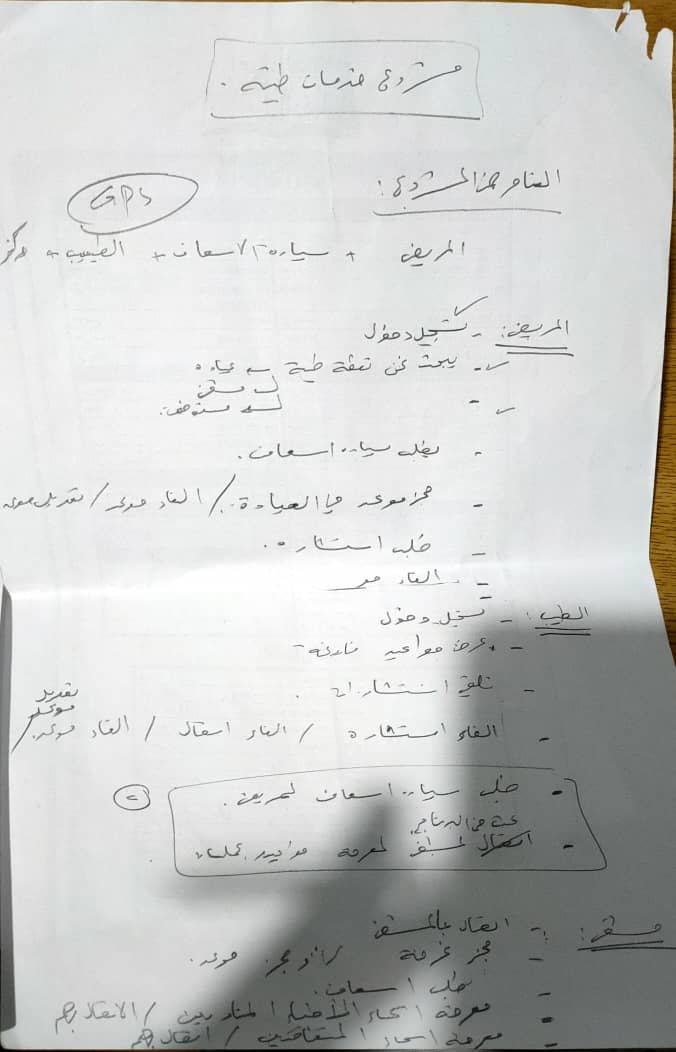 مشروع خدمات طبية .
العناصر ضمن المشروع :
GPS
المريض + سيارة الاسعاف + الطبيب + مركز
المريض : - تسجيل دخول
- يبحث عن نقطة طبية عيادة
مشفى
مستوصف
- يطلب سيارة اسعاف .
- حجز موعد في العيادة / الغاء موعد / تعديل موعد
- طلب استشارة .
- الغاء
الطبيب : - تسجيل دخول
- عرض مواعيد فارغة
- تلقي استشارات .
- الغاء استشارة / الغاء اتصال / الغاء موعد / تعديل موعد
- طلب سيارة اسعاف لمريض .
بحث ضمن البرنامج
- اتصال لمشفى لمعرفة مواعيد عمليات .
مشفى : - اتصال بالمشفى
- حجز غرفة موعد .
- طلب اسعاف .
- معرفة اسماء الأطباء المناوبين / الاتصال بهم
- معرفة اسماء المتعاقدين / اتصال بهم